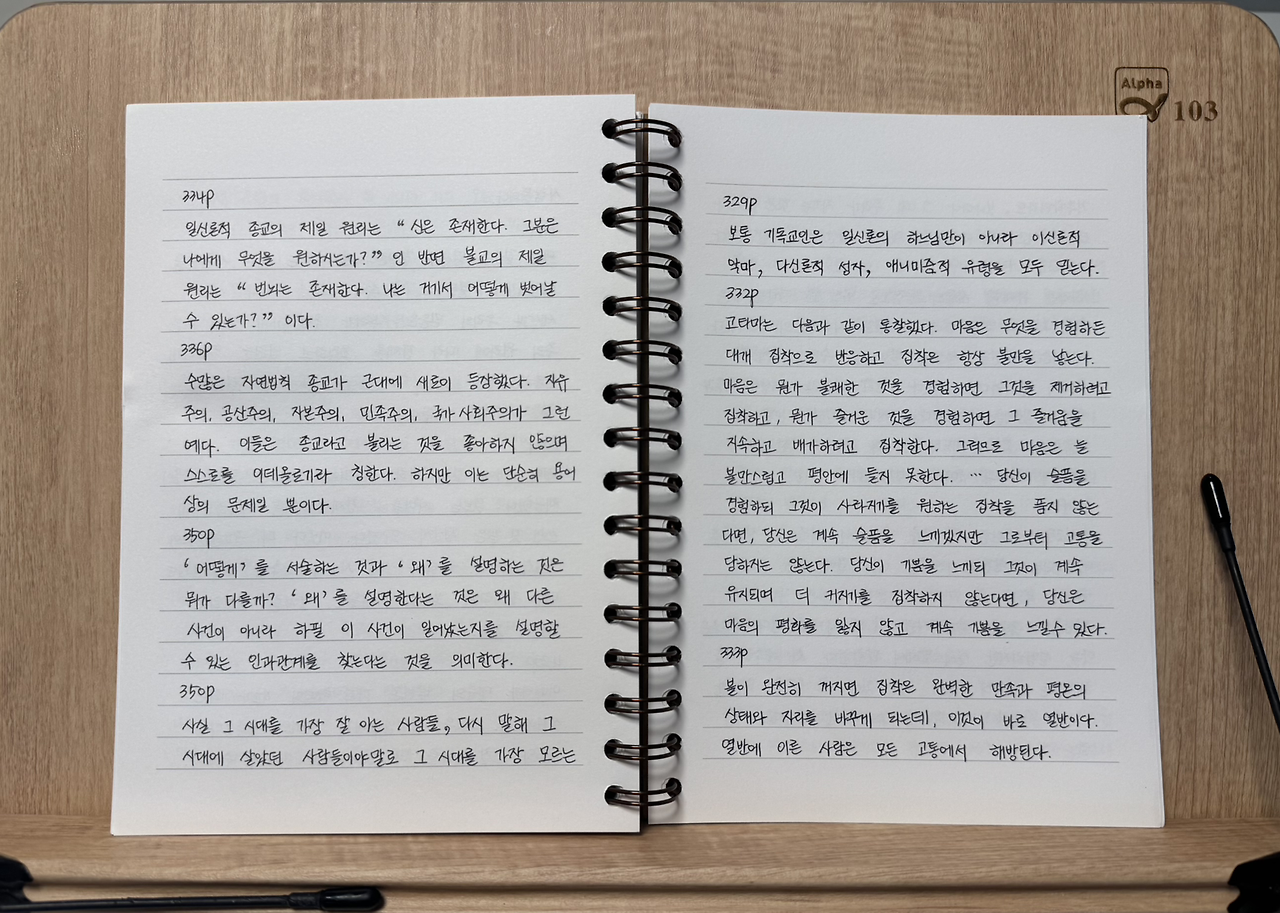 Alpha
103
334p
일신론적 종교의 제일 원리는 “신은 존재한다. 그분은
나에게 무엇을 원하시는가?”인 반면 불교의 제일
원리는 “번뇌는 존재한다. 나는 거기서 어떻게 벗어날
수 있는가?”이다.
336p
수많은 자연법칙 종교가 근대에 새로이 등장했다. 자유
주의, 공산주의, 자본주의, 민족주의, 국가 사회주의가 그런
예다. 이들은 종교라고 불리는 것을 좋아하지 않으며
스스로를 이데올로기라 칭한다. 하지만 이는 단순히 용어
상의 문제일 뿐이다.
350p
‘어떻게’를 서술하는 것과 ‘왜’를 설명하는 것은
뭐가 다를까? ‘왜’를 설명한다는 것은 왜 다른
사건이 아니라 하필 이 사건이 일어났는지를 설명할
수 있는 인과관계를 찾는다는 것을 의미한다.
350p
사실 그 시대를 가장 잘 아는 사람들, 다시 말해 그
시대에 살았던 사람들이야말로 그 시대를 가장 모르는
329p
보통 기독교인은 일신론의 하느님만이 아니라 이신론적
악마, 다신론적 성자, 애니미즘적 유령을 모두 믿는다.
332p
고타마는 다음과 같이 통찰했다. 마음은 무엇을 경험하든
대개 집착으로 반응하고 집착은 항상 불만을 낳는다.
마음은 뭔가 불쾌한 것을 경험하면 그것을 제거하려고
집착하고, 뭔가 즐거운 것을 경험하면 그 즐거움을
지속하고 배가하려고 집착한다. 그러므로 마음은 늘
불만스럽고 평안에 들지 못한다. … 당신이 슬픔을
경험하되 그것이 사라지기를 원하는 집착을 품지 않는
다면, 당신은 계속 슬픔을 느끼겠지만 그로부터 고통을
당하지는 않는다. 당신이 기쁨을 느끼되 그것이 계속
유지되며 더 커지기를 집착하지 않는다면, 당신은
마음의 평화를 잃지 않고 계속 기쁨을 느낄수 있다.
333p
불이 완전히 꺼지면 집착은 완벽한 만족과 평온의
상태와 자리를 바꾸게 되는데, 이것이 바로 열반이다.
열반에 이른 사람은 모든 고통에서 해방된다.